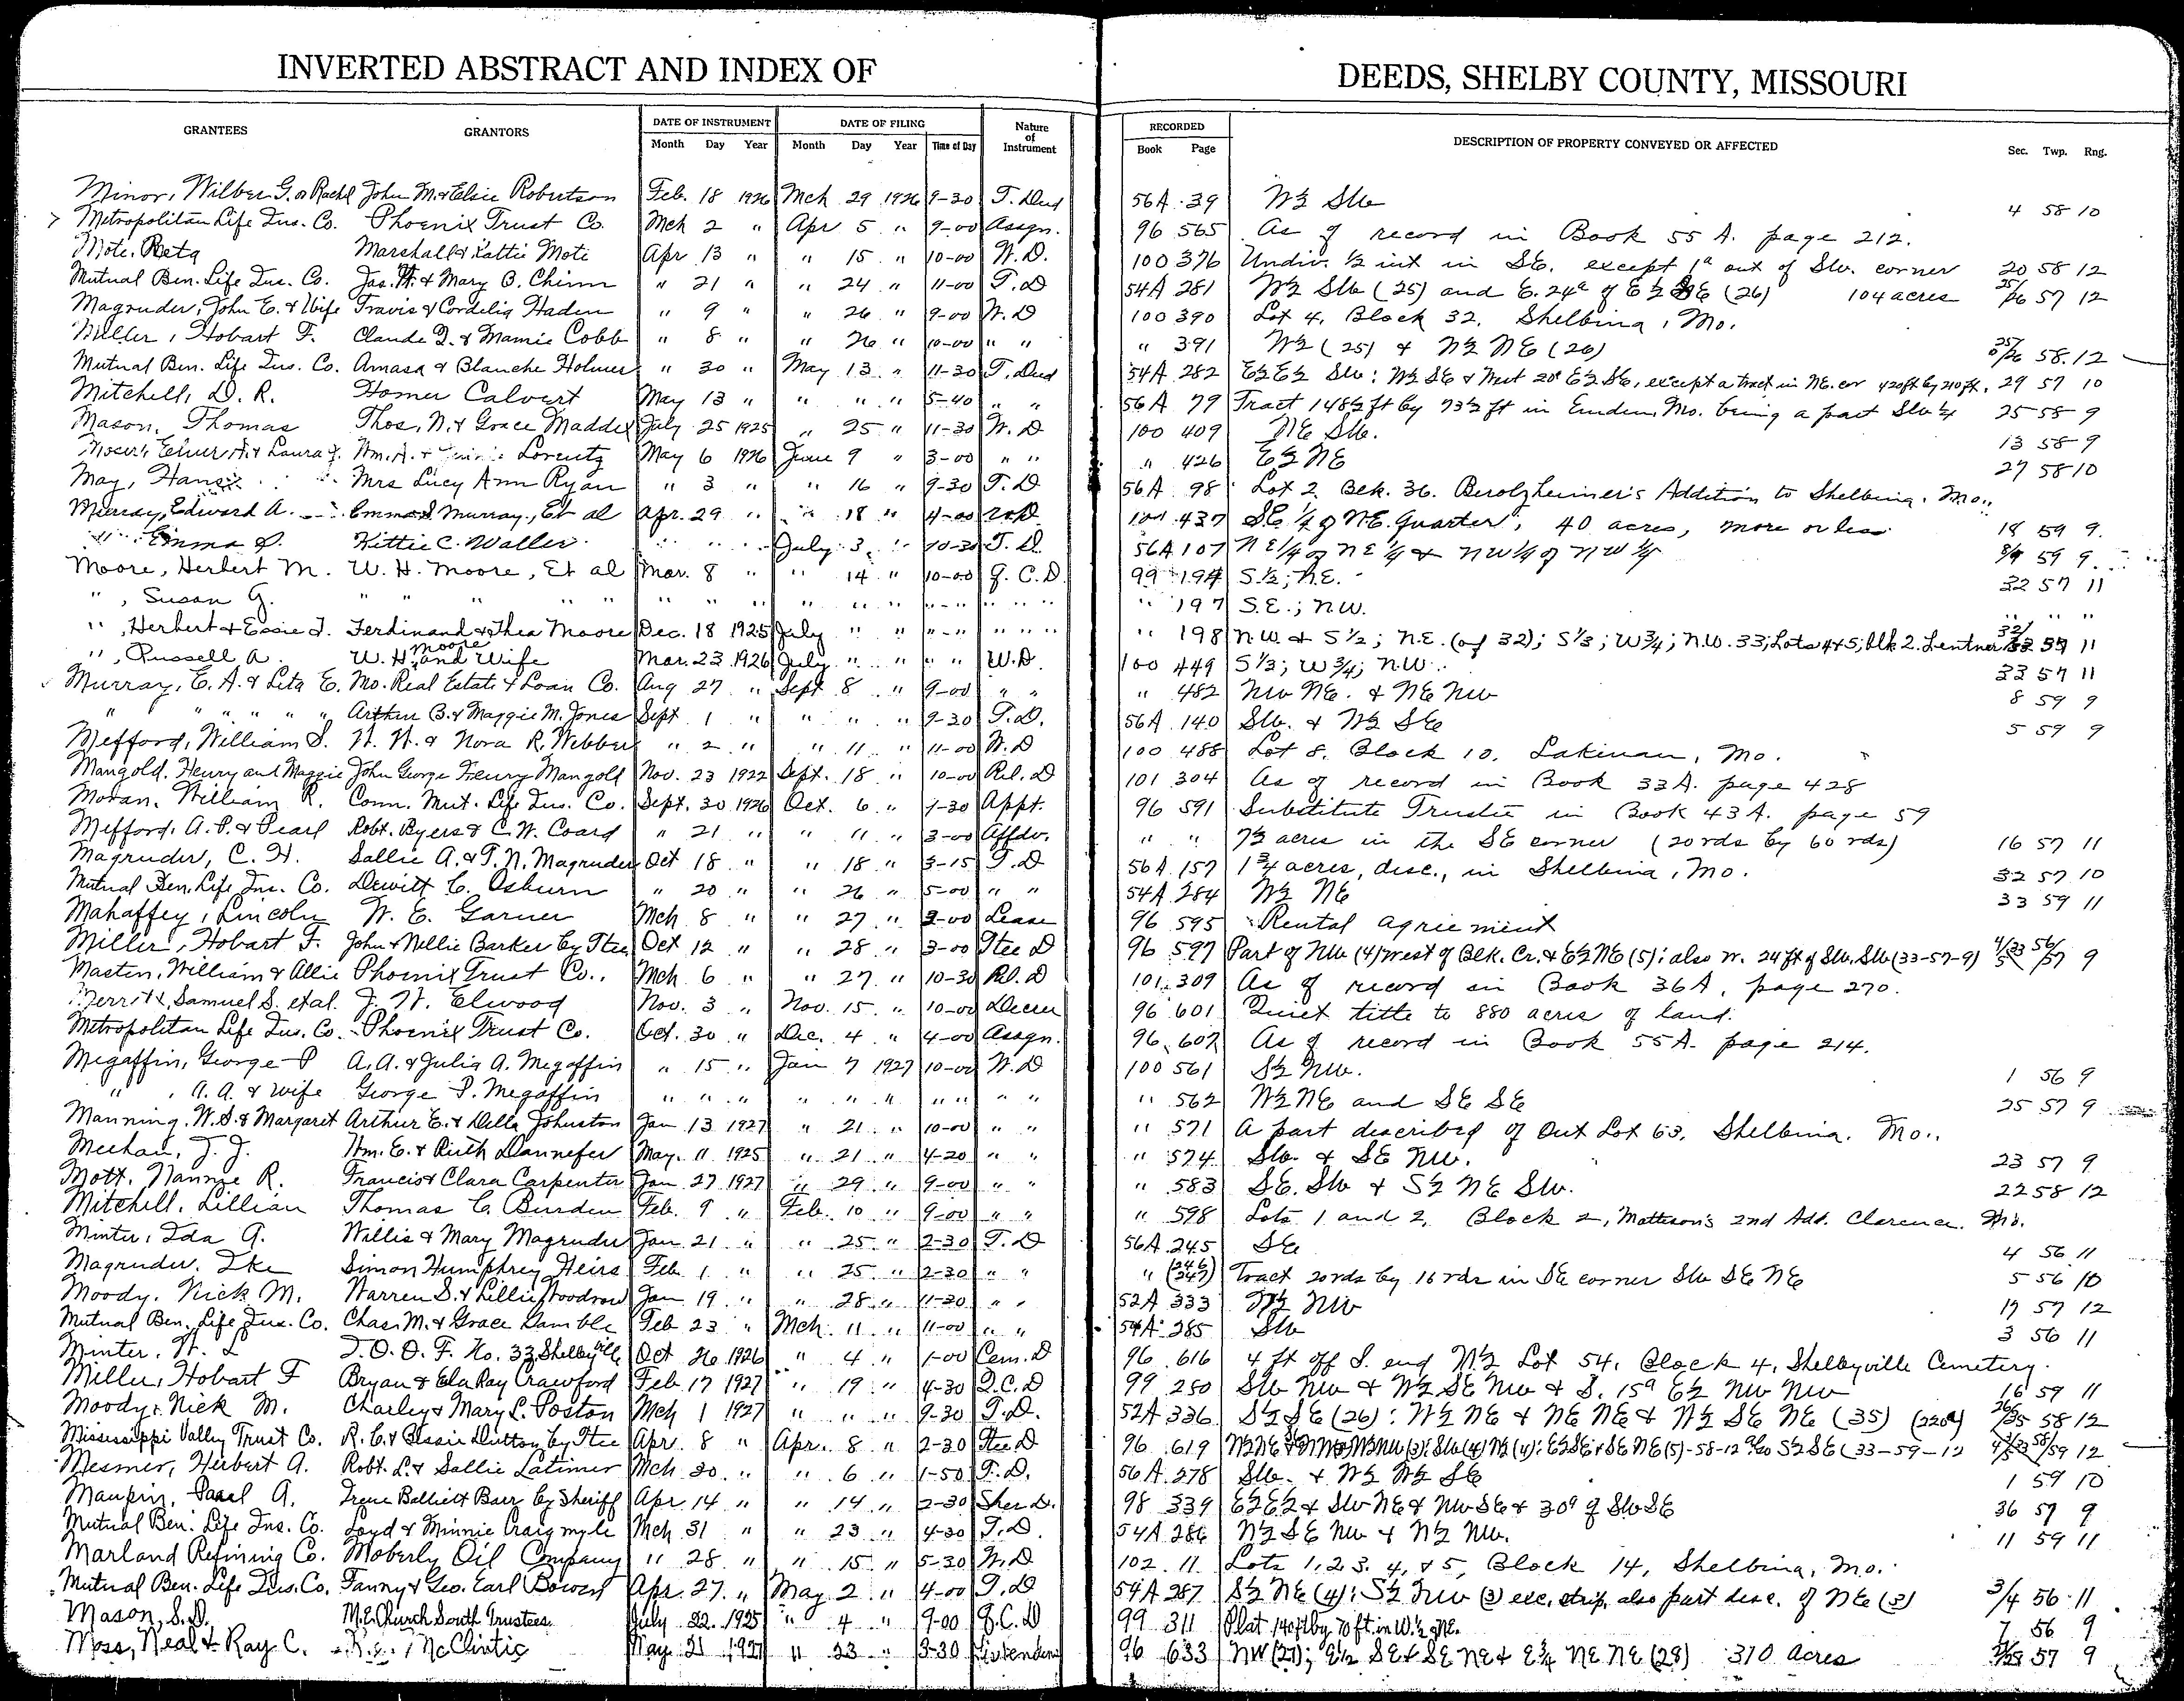 INVERTED ABSTRACT AND INDEX OF DEEDS, SHELBY COUNTY, MISSOURI
GRANTEES GRANTORS DATE OF INSTRUMENT DATE OF FILING Nature of Instrument RECORDED DESCRIPTION OF PROPERTY CONVEYED OR AFFECTED Sec. Twp. Rng.
Month Day Year Month Day Year Time of Day Book Page
Minor, Wilber G. or Rachel John M. & Elsie Robertson Feb. 18 1926 Mch 29 1926 9-30 T. Ded 56A 39 W½ SW 4 58 10
Metropolitan Life Ins. Co. Phoenix Trust Co. Mch 2 " Apr 5 " 9-00 Assgn. 96 565 As of record in Book 55 A. page 212.
Mote, Reta Marshall & Lattie Mote Apr 13 " " 15 " 10-00 W.D. 100 376 Undiv. ½ int in SE. except 1ª out of SW. corner 20 58 12
Mutual Ben. Life Ins. Co. Jas. W. & Mary B. Chinn " 21 " " 24 " 11-00 T.D 54A 281 W½ SW (25) and E. 24ª of E½ SE (26) 104 acres 25/26 57 12
Magruder, John E. & Wife Travis & Cordelia Haden " 9 " " 26 " 9-00 W.D 100 390 Lot 4, Block 32, Shelbina, Mo.
Miller, Hobart F. Claude Q. & Mamie Cobb " 8 " " 26 " 10-00 " " " 391 W½ (25) & N½ NE (26) 25/26 58 12
Mutual Ben. Life Ins. Co. Amasa & Blanche Holmes " 30 " May 13 " 11-30 T. Ded 54A 282 E½E½ SW: W½ SE & West 20ª E½ SE, except a tract in NE. cor 420ft by 210ft. 29 57 10
Mitchell, D. R. Homer Calvert May 13 " " " " 5-40 " " 56A 79 Tract 148½ ft by 73½ ft in Emden, Mo. being a part SW ¼ 25 58 9
Mason, Thomas Thos. N. & Grace Maddex July 25 1925 " 25 " 11-30 W.D 100 409 NE SW. 13 58 9
Moser, Elmer H. & Laura J. Wm. H. & Lorentz May 6 1926 June 9 " 3-00 " " " 426 E½ NE 27 58 10
May, Mrs Lucy Ann Ryan " 3 " " 16 " 9-30 T.D. 56A 98 Lot 2. Blk. 36. Berolzheimer's Addition to Shelbina, Mo..
Murray, Edward A. Emma S Murray., Et al Apr. 29 " " 18 " 4-00 W.D. 101 437 S.E. ¼ of N.E. Quarter, 40 acres, more or less 18 59 9.
" Emma S. Kittie C. Waller " " " July 3, " 10-30 T.D. 56A 107 NE 1/4 of NE ¼ & NW ¼ of NW ¼ 8/9 59 9.
Moore, Herbert M. W. H. Moore, Et al Mar. 8 " " 14 " 10-00 Q.C.D. 99 194 S.½; N.E. 32 57 11
", Susan G. " " " " " " " " " " " " " " " " " " 197 S.E.; N.W. " " "
", Herbert & Essie T. Ferdinand & Thea Moore Dec. 18 1925 July " " " " " " " " 198 N.W. & S ½; N.E. (of 32); S ⅓; W ¾; N.W. 33; Lots 4 & 5; Blk 2. Lentner 32/33 57 11
", Russell A. W. H. Moore and Wife Mar. 23 1926 July " " " " W.D. 100 449 S ⅓; W ¾; N.W. 33 57 11
Murray, E. A. & Leta E. Mo. Real Estate & Loan Co. Aug 27 " Sept 8 " 9-00 " " " 482 NW NE. & NE NW 8 59 9
" " " " " Arthur B. & Maggie M. Jones Sept 1 " " " " 9-30 T.D. 56A 140 SW. & W½ SE 5 59 9
Mefford, William S. W. W. & Nora R. Webber " 2 " " 11 " 11-00 W.D 100 488 Lot 8, Block 10, Lakenan, Mo.
Mangold, Henry and Maggie John George Henry Mangold Nov. 23 1922 Sept. 18 " 10-00 Rel. D 101 304 As of record in Book 33A. page 428
Moran, William R. Conn. Mut. Life Ins. Co. Sept. 30 1926 Oct. 6 " 1-30 Appt. 96 591 Substitute Trustee in Book 43 A. page 59
Mefford, A. P. & Pearl Robt. Byers & C. W. Coard " 21 " " 11 " 3-00 Affdv. " " 7½ acres in the SE corner (20 rds by 60 rds) 16 57 11
Magruder, C. H. Sallie A. & T. N. Magruder Oct 18 " " 18 " 3-15 T.D 56A 157 1¾ acres, desc., in Shelbina, Mo. 32 57 10
Mutual Ben. Life Ins. Co. Dewitt C. Osburn " 20 " " 26 " 5-00 " " 54A 284 W½ NE 33 59 11
Mahaffey, Lincoln W. E. Garner Mch 8 " " 27 " 2-00 Lease 96 595 Rental agreement
Miller, Hobart F. John & Nellie Barker by Ttee Oct 12 " " 28 " 3-00 Ttee D 96 597 Part of NW (4) west of Blk. Cr. & E½ NE (5): also W. 24 ft of SW. SW (33-57-9) 4/33 5 56/57 9
Mastin, William & Allie Phoenix Trust Co., Mch 6 " " 27 " 10-30 Rl. D 101 309 As of record in Book 36A, page 270.
Merritt, Samuel S. et al. J. W. Elwood Nov. 3 " Nov. 15 " 10-00 Decree 96 601 Quiet title to 880 acres of land.
Metropolitan Life Ins. Co. Phoenix Trust Co. Oct. 30 " Dec. 4 " 4-00 Assgn. 96 607 As of record in Book 55A. page 214.
Megaffin, George P A. A. & Julia A. Megaffin " 15 " Jan 7 1927 10-00 W.D 100 561 S½ NW. 1 56 9
" , A. A. & Wife George P. Megaffin " " " " " " " " " " " 562 W½ NE and SE SE 25 57 9
Manning, W. S. & Margaret Arthur E. & Della Johnston Jan 13 1927 " 21 " 10-00 " " " 571 A part described of Out Lot 63, Shelbina, Mo..
Meehan, J. J. Wm. E. & Ruth Dannefer May. 11 1925 " 21 " 4-20 " " " 574 SW. & SE NW. 23 57 9
Mott, Nannie R. Francis & Clara Carpenter Jan 27 1927 " 29 " 9-00 " " " 583 SE. SW & S½ NE SW. 22 58 12
Mitchell, Lillian Thomas C. Burden Feb. 9 " Feb. 10 " 9-00 " " " 598 Lots 1 and 2, Block 2, Matteson's 2nd Add. Clarence, Mo.
Minter, Ida A. Willis & Mary Magruder Jan. 21 " " 25 " 2-30 T.D 56A 245 SE 4 56 11
Magruder, Ike Simon Humphrey Heirs Feb. 1 " " 25 " 2-30 " " " (246 247) Tract 20 rds by 16 rds in SE corner SW SE NE 5 56 10
Moody, Nick M. Warren S. & Lillie Woodrow Jan 19 " " 28 " 11-30 " " 52A 333 W½ NW 17 57 12
Mutual Ben. Life Ins. Co. Chas. M. & Grace Gamble Feb 23 " Mch. 11 " 11-00 " " 54A 285 SW 3 56 11
Minter, W. L I.O.O.F. No. 33, Shelbyville Oct 26 1926 " 4 " 1-00 Cem. D 96 616 4 ft off S. end N½ Lot 54, Block 4, Shelbyville Cemetery.
Miller, Hobart F Bryan & Ela Ray Crawford Feb. 17 1927 " 19 " 4-30 Q.C.D 99 250 SW NW & W½ SE NW & S. 15ª E½ NW NW 16 59 11
Moody, Nick M. Charley & Mary L. Poston Mch 1 1927 " " " 9-30 T.D. 52A 336 S½ SE (26): W½ NE & NE NE & N½ SE NE (35) (220ª) 26/35 58 12
Mississippi Valley Trust Co. R. C. & Elssie Dutton by Ttee Apr. 8 " Apr. 8 " 2-30 Ttee D 96 619 NW (3): SW (4) N½ (4): E½ SE & SE NE (5)-58-12 also S½ SE (33-59-12 58/59 12
Mesmer, Herbert A. Robt. L. & Sallie Latimer Mch 30 " " 6 " 1-50 T.D. 56A 278 SW. & W½ W½ SE 1 59 10
Maupin, Pearl A. Irene Balliett Barr by Sheriff Apr. 14 " " 14 " 2-30 Sher D. 98 339 E½ E½ & SW NE & NW SE & 30ª of SW SE 36 57 9
Mutual Ben. Life Ins. Co. Loyd & Minnie Craigmyle Mch 31 " " 23 " 4-30 T.D. 54A 286 N½ SE NW & N½ NW. 11 59 11
Marland Refining Co. Moberly Oil Company " 28 " " 15 " 5-30 W.D 102 11 Lots 1, 2, 3, 4, & 5, Block 14, Shelbina, Mo.
Mutual Ben. Life Ins. Co. Fanny & Geo. Earl Bowen Apr. 27. " May 2 " 4-00 T.D 54A 287 S½ NE (4): S½ NW (3) exc. strip, also part desc. of NE (3) 3/4 56 11
Mason, S. D. M.E. Church South Trustees July 22. 1925 " 4 " 9-00 Q.C.D 99 311 Plat 140 ft by 70 ft. in W.½ of NE. 7 56 9
Moss, Neal & Ray C. McClintic May 21 1927 " 23 " 3-30 96 633 NW (27); E½ SE & SE NE & E¾ NE NE (28) 310 acres 27/28 57 9